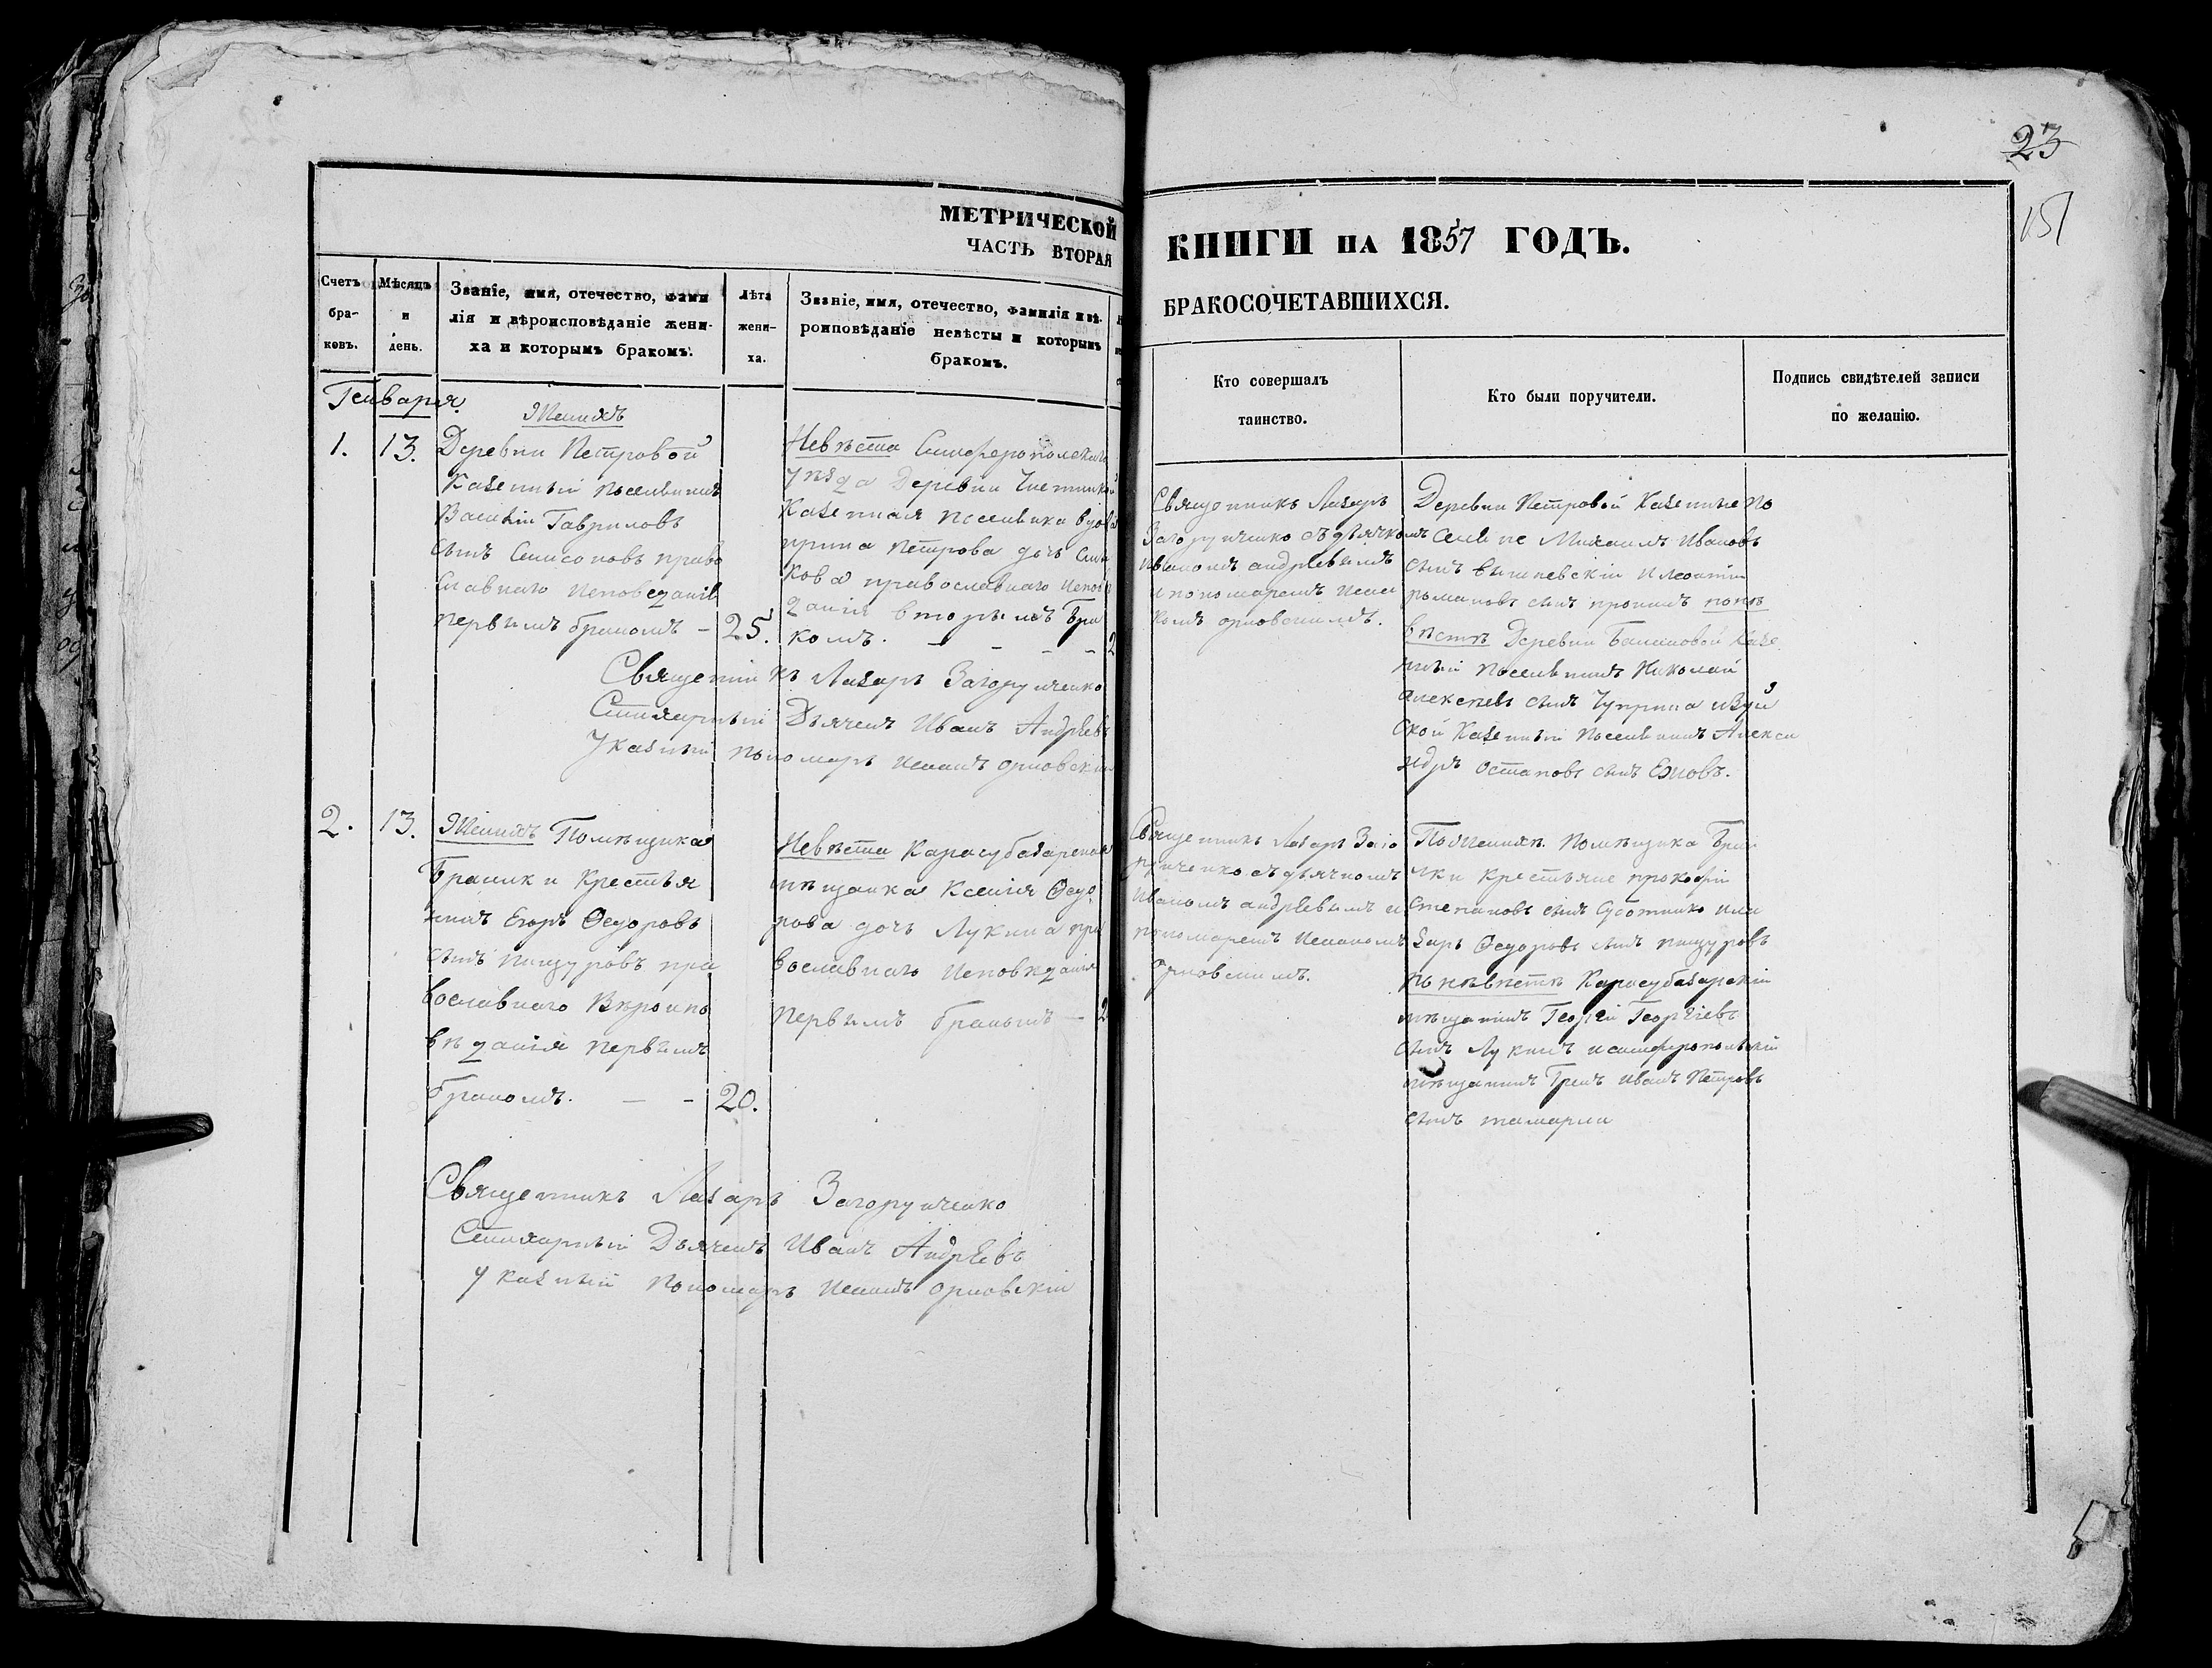 23
151
МЕТРИЧЕСКОЙ
ЧАСТЬ ВТОРАЯ
КНИГИ НА 1857 ГОДЪ.
БРАКОСОЧЕТАВШИХСЯ.
Счетъ
бра-
ковъ.
Мѣсяцъ
и
день.
Званіе, имя, отечество, фами
лія и вѣроисповѣданіе жени-
ха и которымъ бракомъ.
лѣта
жени-
ха.
Званіе, имя, отечество, фамилія и вѣ-
роиповѣданіе невѣсты и которымъ
бракомъ.
Кто совершалъ
таинство.
Кто были поручители.
Подпись свидѣтелей записи
по желанію.
Генваря
1. 13.
Женихъ
Деревни Петровой
Казенный поселянинъ
Василій Гавриловъ
сынъ право
славнаго исповеданія
первымъ бракомъ - 25.
Невѣста Симферопольскаго
уѣзда Деревни
Казенная поселянка вдова
Петрова дочь
кова православнаго испове
данія вторымъ бра
комъ. - - - - 2
Священникъ Лазарь
съ дьячкомъ
Иваномъ Андрѣевымъ
и пономаремъ
орловскимъ.
Деревни Петровой Казенные по
селяне Михаилъ Ивановъ
сынъ вишневскій и леонтій
романовъ сынъ по не
вѣстѣ Деревни Казе
нный поселянинъ Николай
алексѣевъ сынъ Чуприна
ской Казенный поселянинъ Алекса
ндръ остаповъ сынъ
Священникъ Лазарь
Стихарный Дьячекъ Иванъ Андрѣевъ
Указный пономарь орловскій
2. 13.
Женихъ Помѣщика
крестья
нинъ Егоръ Ѳедоровъ
сынъ пра
вославнаго Вѣроиспо
вѣданія первымъ
бракомъ. - - 20.
Невѣста Карасубазарская
мѣщанка Ксенія Ѳедо
рова дочь Лукина пра
вославнаго исповѣданія
первымъ бракомъ - 2
Священникъ Лазарь
съ дьячкомъ
Иваномъ андрѣевымъ и
пономаремъ
орловскимъ.
По женихѣ помѣщика
крестьяне прокофій
Степановъ сынъ и ла
зарь Ѳедоровъ сынъ
по невѣстѣ Карасубазарскій
мѣщанинъ Георгій Георгіевъ
сынъ Лукинъ и симферопольскій
мѣщанинъ Грекъ Иванъ Петровъ
сынъ
Священникъ Лазарь
Стихарный Дьячекъ Иванъ Андрѣевъ
Указный пономарь орловскій